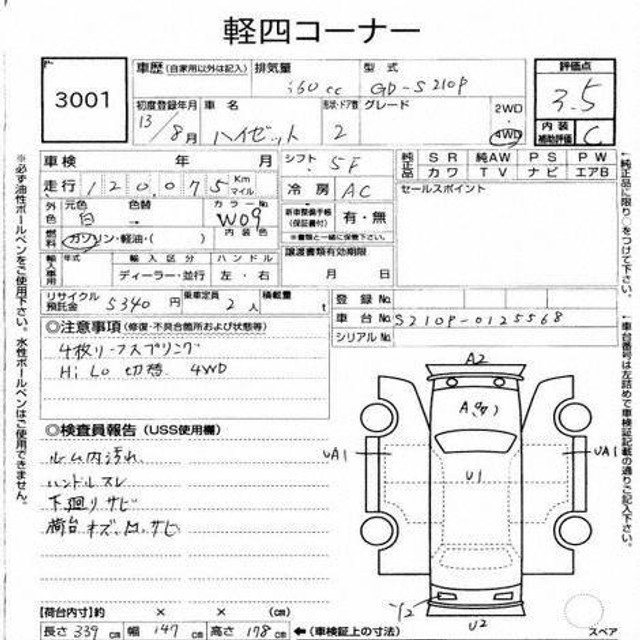 軽四コーナー
3001
車歴 (自家用以外は記入) 排気量 型式
i60cc GD-S210P
評価点
3.5
内装
補助評価 C
初度登録年月 車名 形状・ドア数 グレード
13/8月 ハイゼット 2
2WD
4WD
車検 年 月
シフト 5F
走行 120,075 Km マイル
冷房 AC
純正品 SR 純AW PS PW
カワ TV ナビ エアB
セールスポイント
外色 元色 色替 カラーNo.
白 → W09
内装色
燃料 ガソリン・軽油・( )
新車整備手帳 (保証書付) 有・無
※書類と一緒に保管下さい。
輸入車用 年式 輸入区分 ハンドル
ディーラー・並行 左・右
譲渡書類有効期限
月 日
リサイクル預託金 5340円 乗車定員 2人 積載量 t
登録No.
車台No. S210P-0125568
シリアルNo.
◎注意事項 (修復・不具合箇所および状態等)
4枚リーフスプリング
Hi Lo 切替 4WD
◎検査員報告 (USS使用欄)
ルーム内汚れ
ハンドルスレ
下廻りサビ
荷台キズ、凹、サビ
A2
UA1
U1
UA1
Y2
U2
スペア
【荷台内寸】約 × × (cm)
長さ 339 cm 幅 147 cm 高さ 178 cm ←(車検証上の寸法)
※必ず油性ボールペンをご使用下さい。水性ボールペンはご使用できません。
※純正品に限り○をつけて下さい。
※車台番号は左詰めで車検証記載の通りご記入下さい。